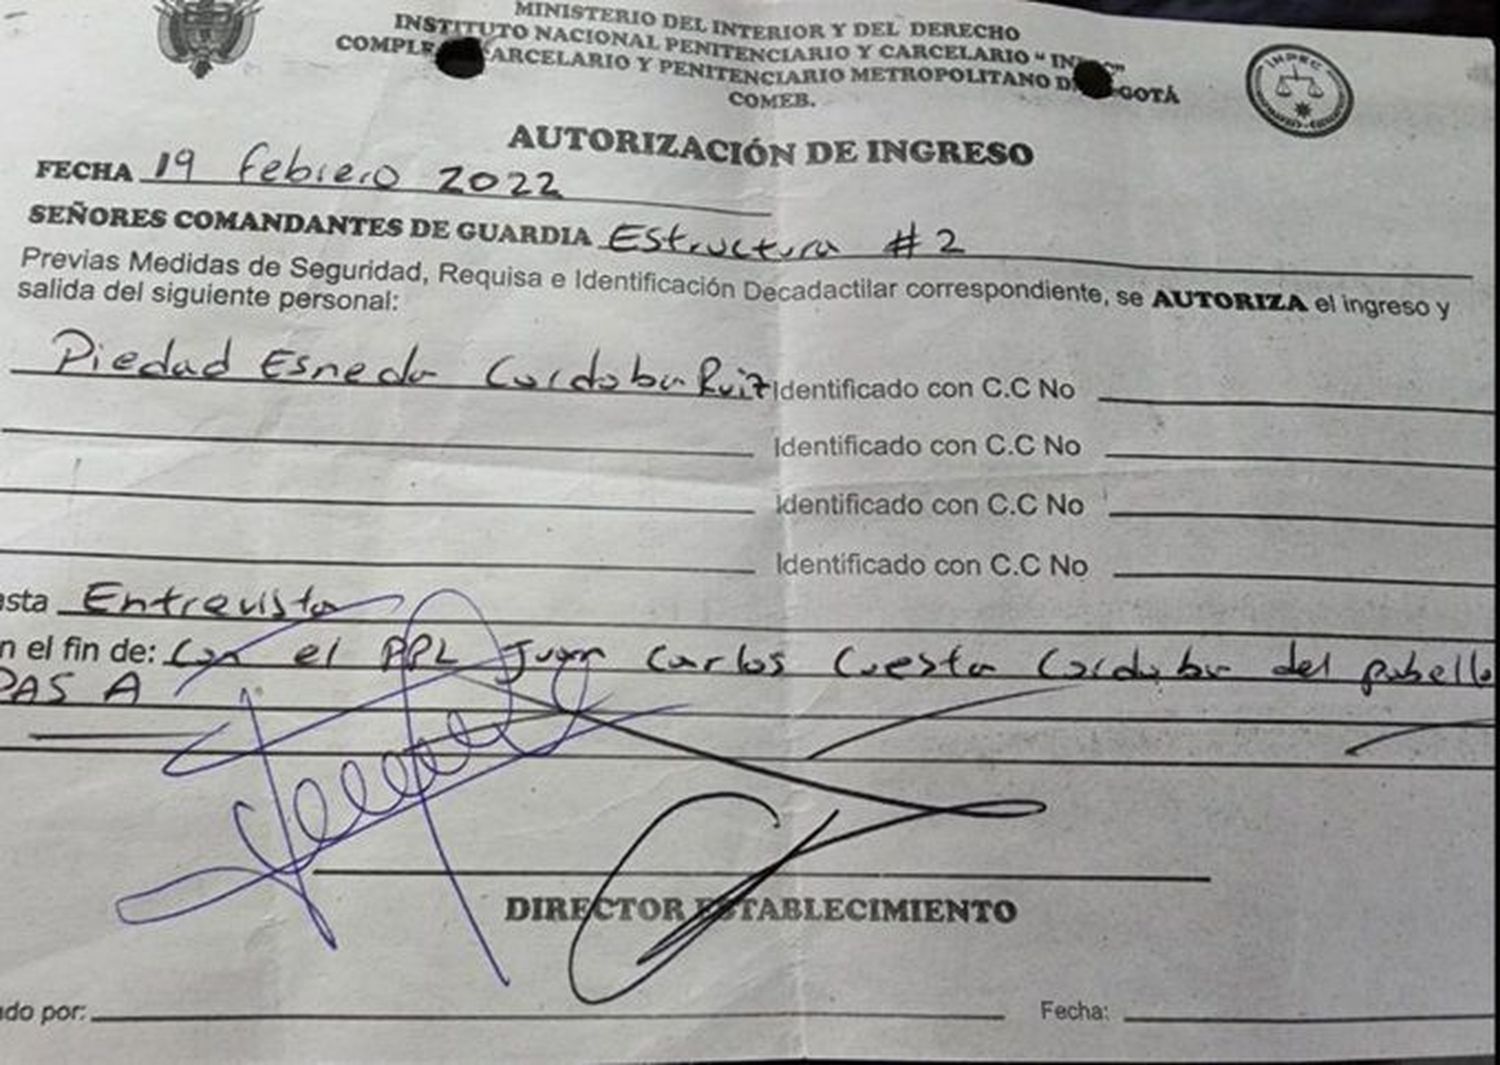 MINISTERIO DEL INTERIOR Y DEL DERECHO
INSTITUTO NACIONAL PENITENCIARIO Y CARCELARIO "
COMPLE ARCELARIO Y PENITENCIARIO METROPOLITANO D GOTÁ
COMEB.
INPEC
AUTORIZACIÓN DE INGRESO
FECHA 19 febrero 2022
SEÑORES COMANDANTES DE GUARDIA Estructura #2
Previas Medidas de Seguridad, Requisa e Identificación Decadactilar correspondiente, se AUTORIZA el ingreso y
salida del siguiente personal:
Piedad Esneda Cordoba Ruiz Identificado con C.C No
Identificado con C.C No
Identificado con C.C No
Identificado con C.C No
asta Entrevista
n el fin de: Con el PPL Juan Carlos Cuesta Cordoba del pabello
PAS A
DIRECTOR ESTABLECIMIENTO
do por: Fecha: